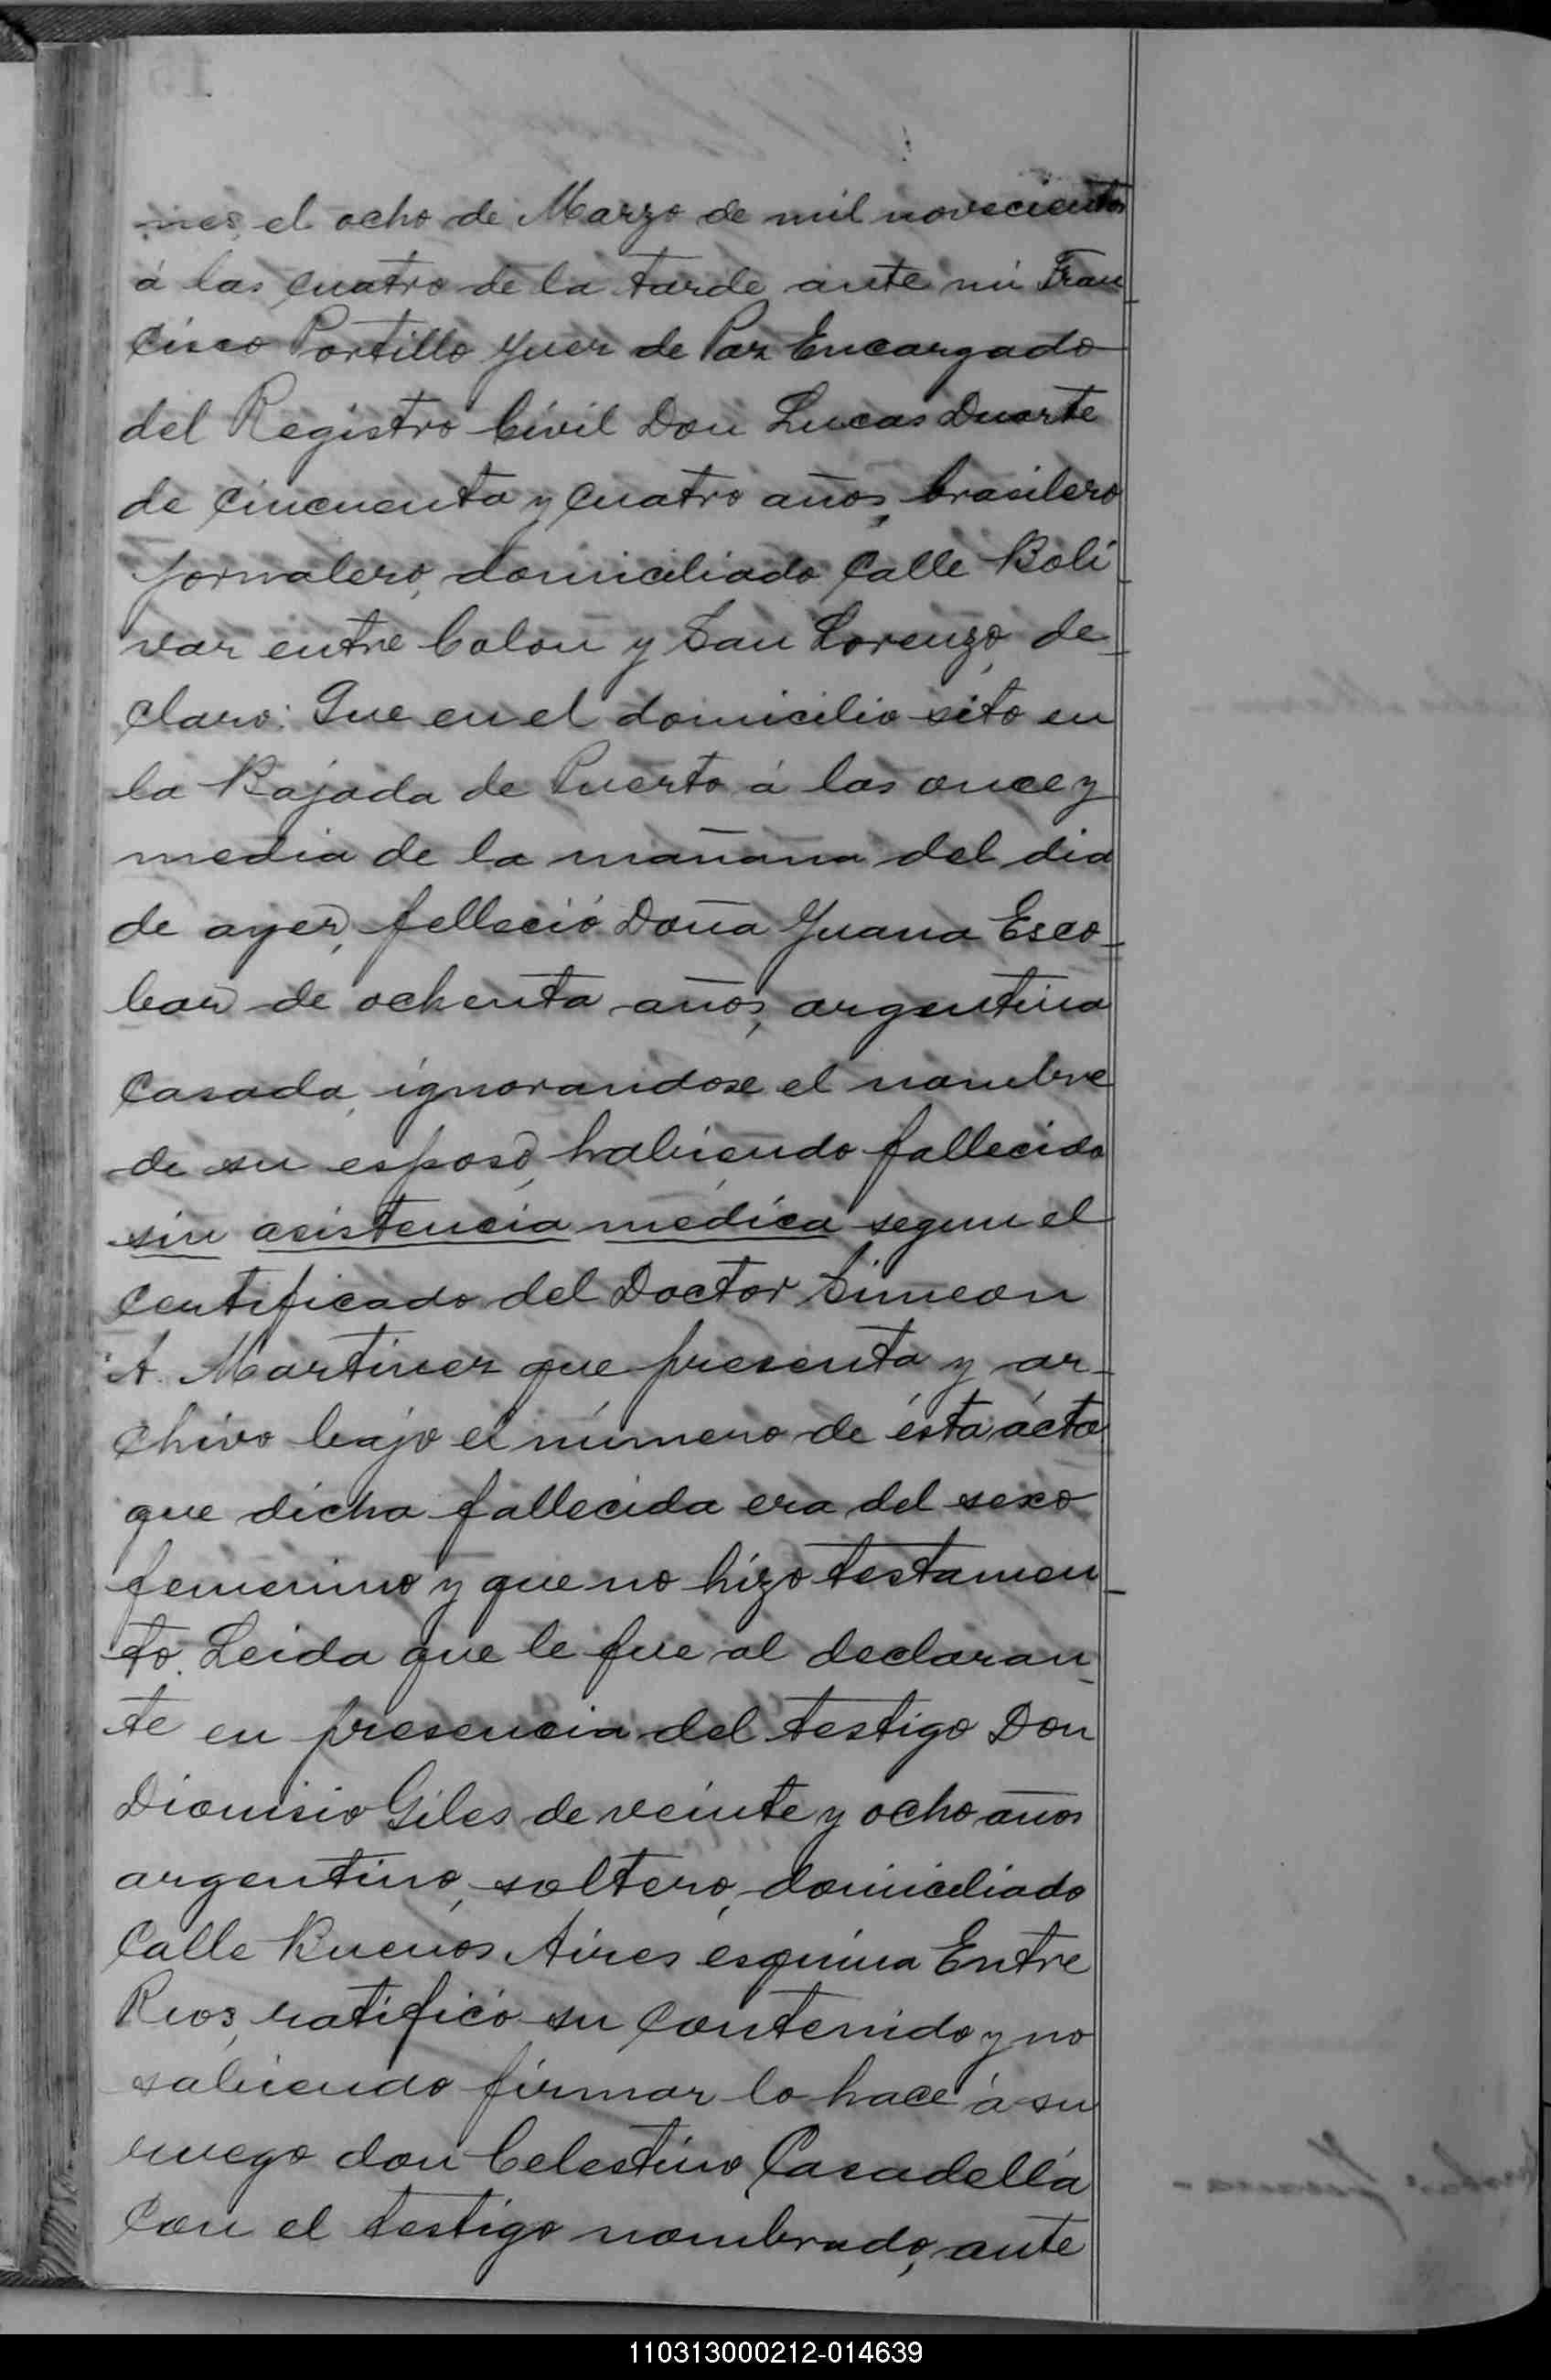 nes, el ocho de Marzo de mil novecientos
á las cuatro de la tarde ante mi Fran
cisco Portillo Juez de Paz Encargado
del Registro Civil Don Lucas Duarte
de cincuenta y cuatro años, brasilero
jornalero, domiciliado Calle Boli
var entre Colon y San Lorenzo, de_
claro: Que en el domicilio sito en
la Bajada de Puerto á las once y
media de la mañana del dia
de ayer, felleció Doña Juana Esco_
bar de ochenta años, argentina
Casada, ignorandose el nombre
de su esposo, habiendo fallecido
sin asistencia médica segun el
certificado del Doctor Simeon
A. Martinez que presenta y ar_
chivo bajo el número de ésta ácta
que dicha fallecida era del sexo
femenino y que no hizo testamen_
to. Leida que le fue al declaran_
te en presencia del testigo Don
Dionisio Giles de veinte y ocho años
argentino, soltero, domiciliado
Calle Buenos Aires esquina Entre
Rios, ratificó su contenido y no
sabiendo firmar lo hace á su
ruego don Celestino Casadella
Con el testigo nombrado, ante
110313000212-014639